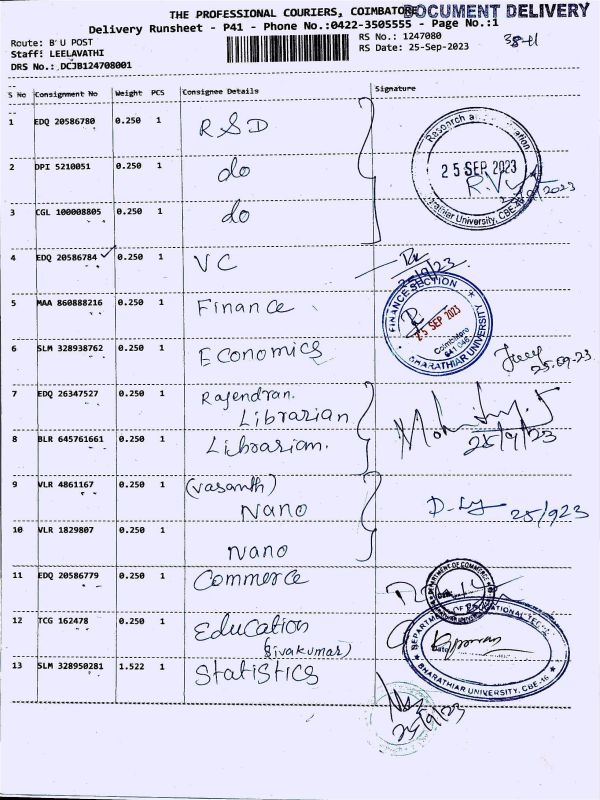 THE PROFESSIONAL COURIERS, COIMBATORE
DOCUMENT DELIVERY
Delivery Runsheet - P41 - Phone No.:0422-3505555 - Page No.:1
Route: B U POST
RS No.: 1247080
38-11
Staff: LEELAVATHI
RS Date: 25-Sep-2023
DRS No.: DCJB124708001
S No Consignment No Weight PCS Consignee Details Signature
1 EDQ 20586780 0.250 1 RSD
2 DPI 5210051 0.250 1 do
3 CGL 100008805 0.250 1 do
Research a
25 SEP 2023
University, CBE-46
4 EDQ 20586784 0.250 1 VC
5 MAA 860888216 0.250 1 Finance
FINANCE SECTION
25 SEP 2023
Coimbatore
641 046
BHARATHIAR UNIVERSITY
6 SLM 328938762 0.250 1 Economics
25.09.23
7 EDQ 26347527 0.250 1 Rajendran.
Librarian
8 BLR 645761661 0.250 1 Librarian.
25/9/23
9 VLR 4861167 0.250 1 (vasanth)
Nano
25/923
10 VLR 1829807 0.250 1 Nano
11 EDQ 20586779 0.250 1 Commerce
DEPARTMENT OF COMMERCE
12 TCG 162478 0.250 1 Education
(Sivakumar)
DEPARTMENT OF EDUCATIONAL TECH
Date
BHARATHIAR UNIVERSITY, CBE-46
13 SLM 328950281 1.522 1 Statistics
25/9/23